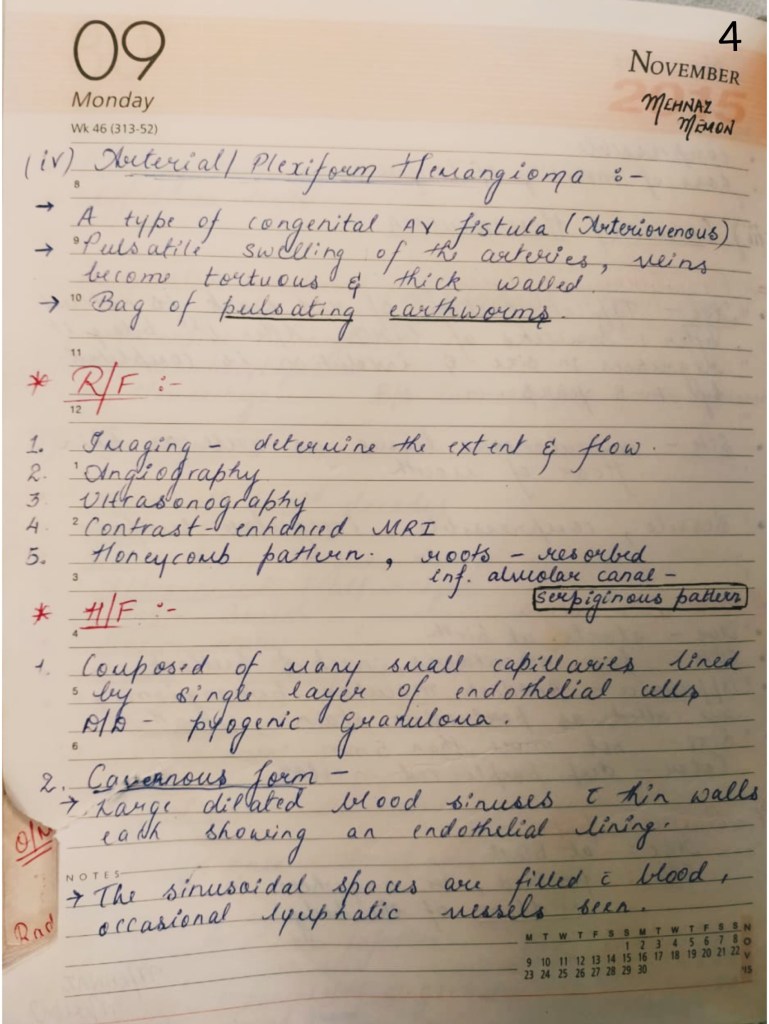 4
09
Monday
Wk 46 (313-52)
NOVEMBER
2015
MEHNAZ
MEMON
(iv) Arterial/ Plexiform Hemangioma :-
8
→ A type of congenital AV fistula (Arteriovenous)
→ 9 Pulsatile swelling of the arteries, veins
become tortuous & thick walled.
→ 10 Bag of pulsating earthworms.
11
* R/F :-
12
1. Imaging - determine the extent & flow.
2. 1 Angiography
3 Ultrasonography
4 2 Contrast-enhanced MRI
5. Honeycomb pattern., roots - resorbed
3 inf. alveolar canal -
serpiginous pattern
* H/F :-
4
1. Composed of many small capillaries lined
5 by single layer of endothelial cells
D/D - pyogenic Granuloma.
6
2. Cavernous form -
→ Large dilated blood sinuses c̄ thin walls
each showing an endothelial lining.
NOTES
→ The sinusoidal spaces are filled c̄ blood,
occasional lymphatic vessels seen.
M T W T F S S M T W T F S S
1 2 3 4 5 6 7 8
9 10 11 12 13 14 15 16 17 18 19 20 21 22
23 24 25 26 27 28 29 30
NOV
15